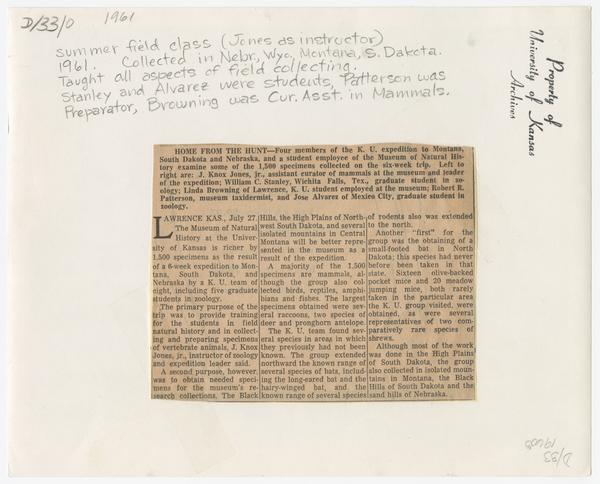 D/33/0 1961
summer field class (Jones as instructor)
1961. Collected in Nebr, Wyo, Montana, S. Dakota.
Taught all aspects of field collecting.
Stanley and Alvarez were students, Patterson was
Preparator, Browning was Cur. Asst. in Mammals.
Property of
University of Kansas
Archives
HOME FROM THE HUNT—Four members of the K. U. expedition to Montana,
South Dakota and Nebraska, and a student employee of the Museum of Natural His-
tory examine some of the 1,500 specimens collected on the six-week trip. Left to
right are: J. Knox Jones, jr., assistant curator of mammals at the museum and leader
of the expedition; William C. Stanley, Wichita Falls, Tex., graduate student in zo-
ology; Linda Browning of Lawrence, K. U. student employed at the museum; Robert R.
Patterson, museum taxidermist, and Jose Alvarez of Mexico City, graduate student in
zoology.
LAWRENCE KAS., July 27
The Museum of Natural
History at the Univer-
sity of Kansas is richer by
1,500 specimens as the result
of a 6-week expedition to Mon-
tana, South Dakota, and
Nebraska by a K. U. team of
eight, including five graduate
students in zoology.
The primary purpose of the
trip was to provide training
for the students in field
natural history and in collect-
ing and preparing specimens
of vertebrate animals, J. Knox
Jones, jr., instructor of zoology
and expedition leader said.
A second purpose, however,
was to obtain needed speci-
mens for the museum's re-
search collections. The Black
Hills, the High Plains of North-
west South Dakota, and several
isolated mountains in Central
Montana will be better repre-
sented in the museum as a
result of the expedition.
A majority of the 1,500
specimens are mammals, al-
though the group also col-
lected birds, reptiles, amphib-
ians and fishes. The largest
specimens obtained were sev-
eral raccoons, two species of
deer and pronghorn antelope.
The K. U. team found sev-
eral species in areas in which
they previously had not been
known. The group extended
northward the known range of
several species of bats, includ-
ing the long-eared bat and the
hairy-winged bat, and the
known range of several species
of rodents also was extended
to the north.
Another "first" for the
group was the obtaining of a
small-footed bat in North
Dakota; this species had never
before been taken in that
state. Sixteen olive-backed
pocket mice and 20 meadow
jumping mice, both rarely
taken in the particular area
the K. U. group visited, were
obtained, as were several
representatives of two com-
paratively rare species of
shrews.
Although most of the work
was done in the High Plains
of South Dakota, the group
also collected in isolated moun-
tains in Montana, the Black
Hills of South Dakota and the
sand hills of Nebraska.
D/33